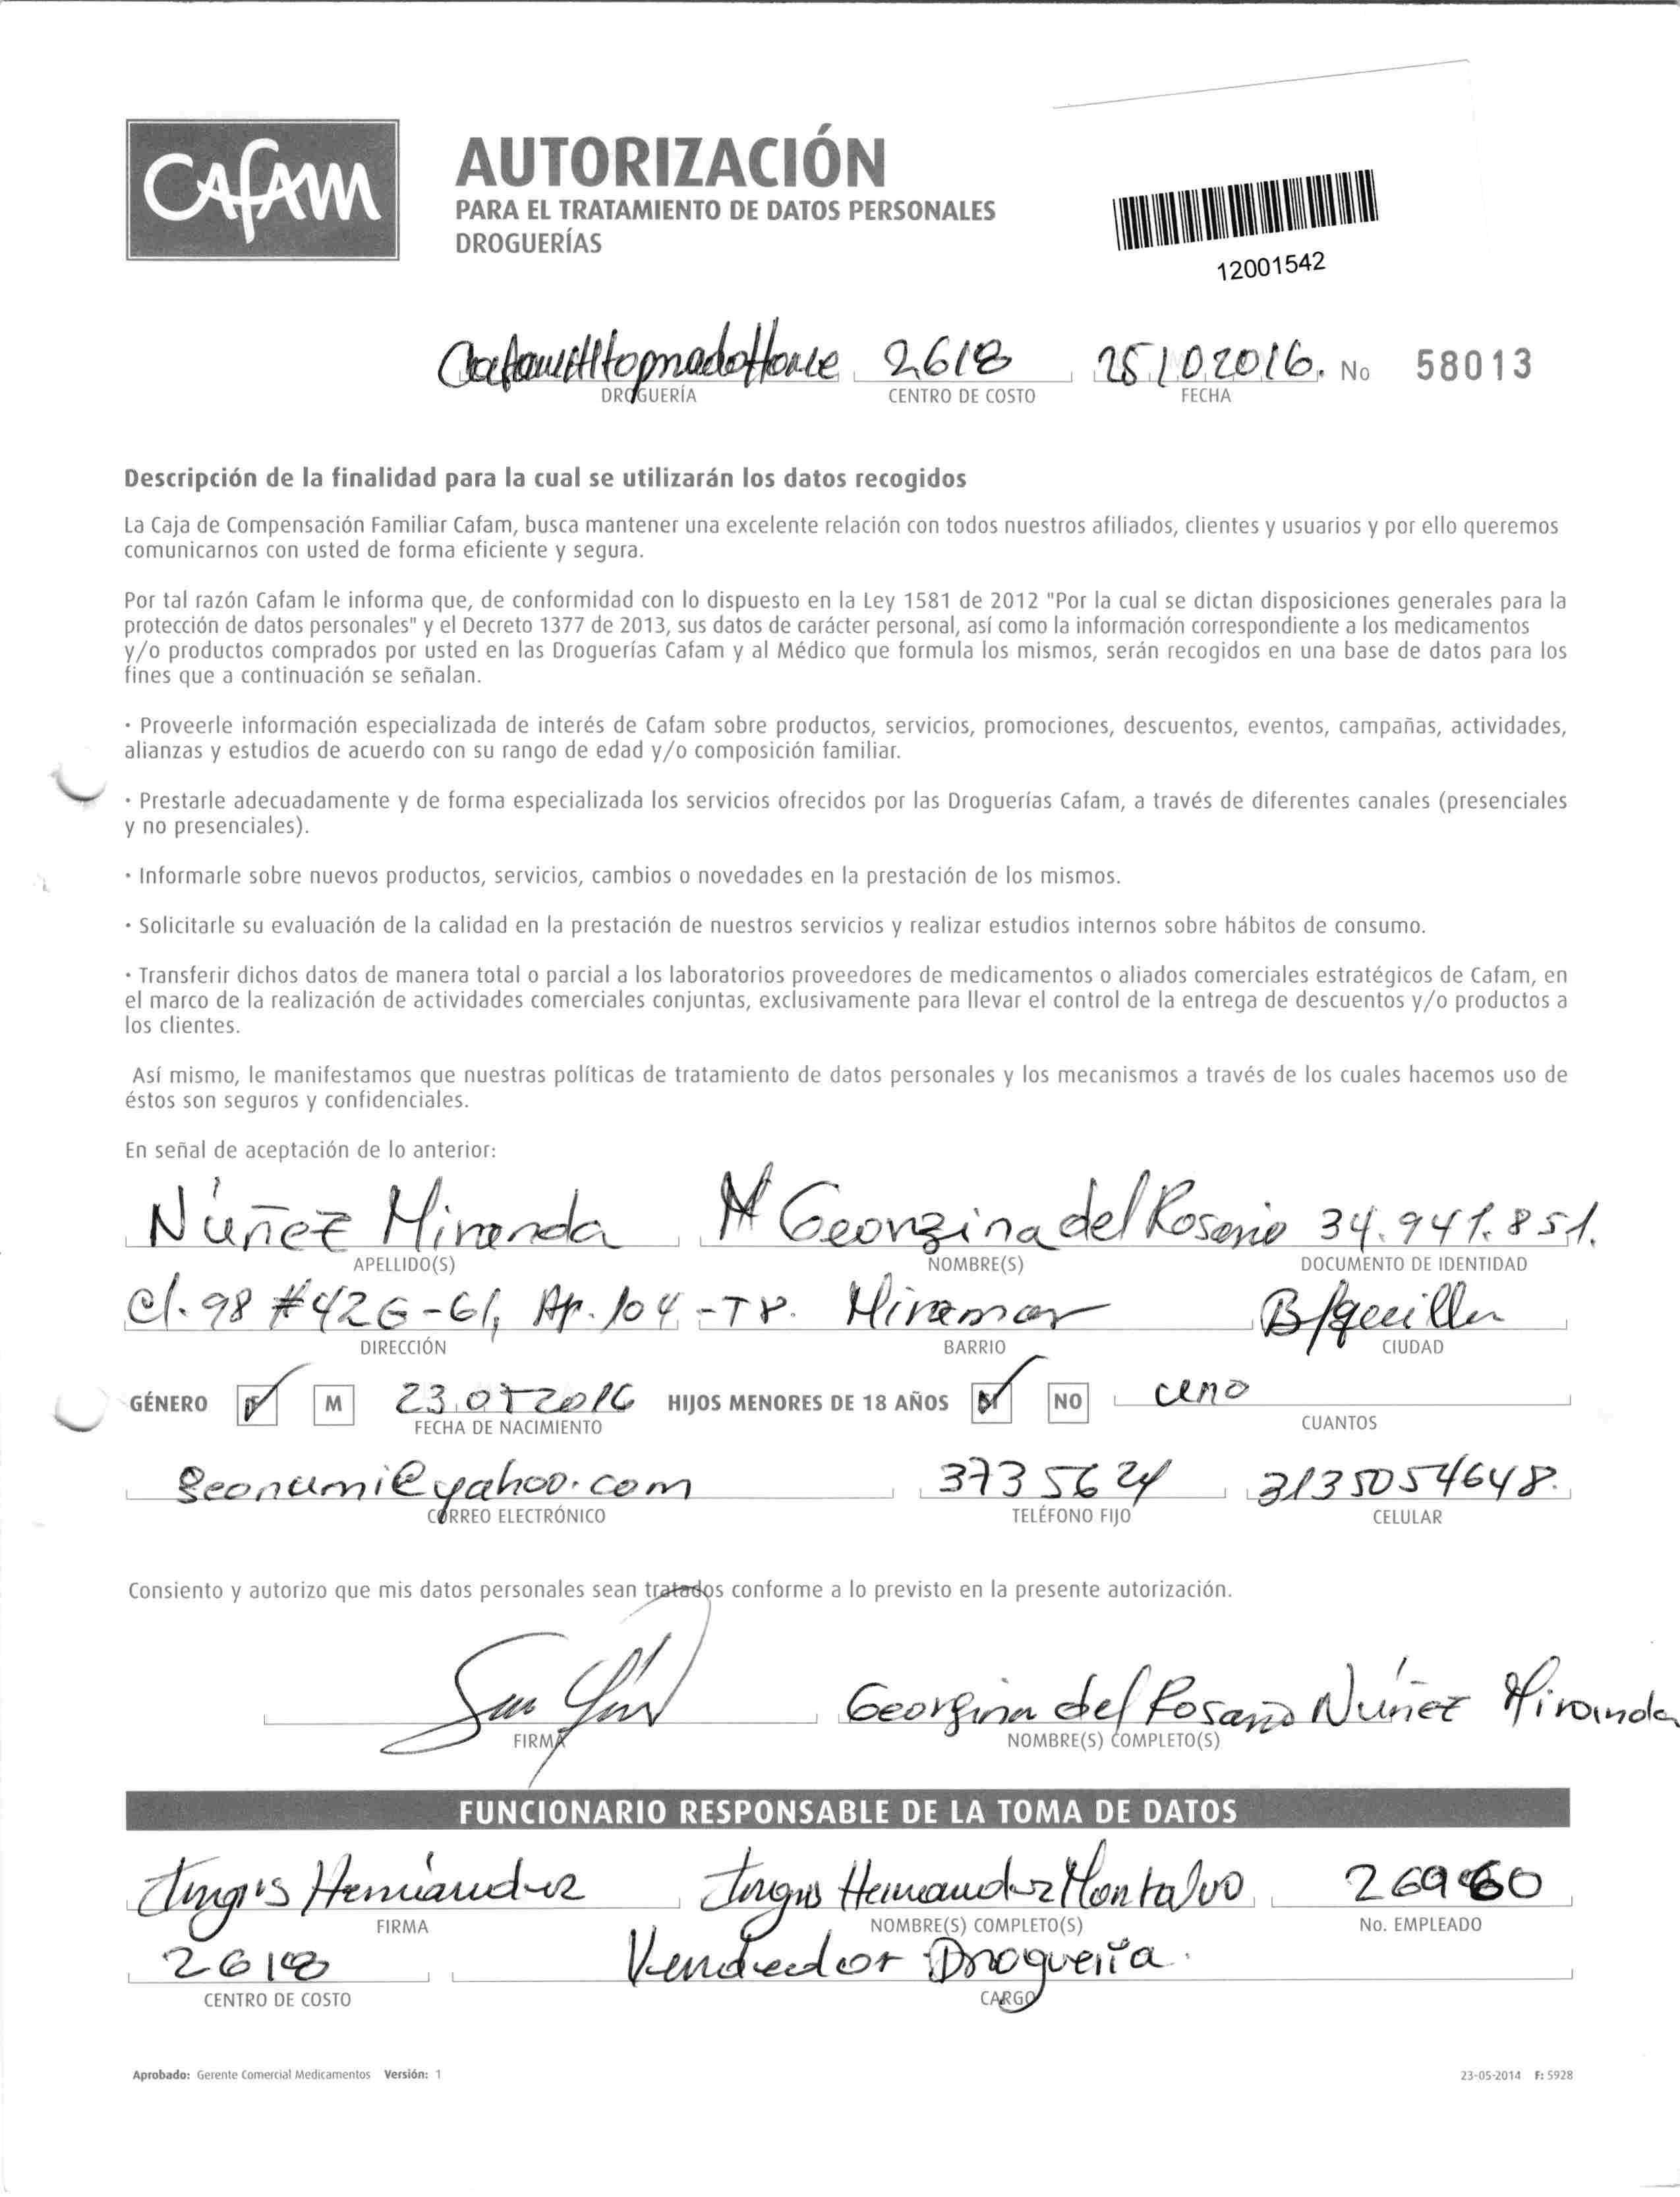 CAFAM
AUTORIZACIÓN
PARA EL TRATAMIENTO DE DATOS PERSONALES
DROGUERÍAS
12001542
2618 25102016. No 58013
DROGUERÍA CENTRO DE COSTO FECHA
Descripción de la finalidad para la cual se utilizarán los datos recogidos
La Caja de Compensación Familiar Cafam, busca mantener una excelente relación con todos nuestros afiliados, clientes y usuarios y por ello queremos
comunicarnos con usted de forma eficiente y segura.
Por tal razón Cafam le informa que, de conformidad con lo dispuesto en la Ley 1581 de 2012 "Por la cual se dictan disposiciones generales para la
protección de datos personales" y el Decreto 1377 de 2013, sus datos de carácter personal, así como la información correspondiente a los medicamentos
y/o productos comprados por usted en las Droguerías Cafam y al Médico que formula los mismos, serán recogidos en una base de datos para los
fines que a continuación se señalan.
· Proveerle información especializada de interés de Cafam sobre productos, servicios, promociones, descuentos, eventos, campañas, actividades,
alianzas y estudios de acuerdo con su rango de edad y/o composición familiar.
· Prestarle adecuadamente y de forma especializada los servicios ofrecidos por las Droguerías Cafam, a través de diferentes canales (presenciales
y no presenciales).
· Informarle sobre nuevos productos, servicios, cambios o novedades en la prestación de los mismos.
· Solicitarle su evaluación de la calidad en la prestación de nuestros servicios y realizar estudios internos sobre hábitos de consumo.
· Transferir dichos datos de manera total o parcial a los laboratorios proveedores de medicamentos o aliados comerciales estratégicos de Cafam, en
el marco de la realización de actividades comerciales conjuntas, exclusivamente para llevar el control de la entrega de descuentos y/o productos a
los clientes.
Así mismo, le manifestamos que nuestras políticas de tratamiento de datos personales y los mecanismos a través de los cuales hacemos uso de
éstos son seguros y confidenciales.
En señal de aceptación de lo anterior:
Núñez Miranda Georgina del Rosario 34.941.851.
APELLIDO(S) NOMBRE(S) DOCUMENTO DE IDENTIDAD
Cl. 98 #42G-61, Ap. 104-T8. Miramar B/quilla
DIRECCIÓN BARRIO CIUDAD
GÉNERO F M 23 2016 HIJOS MENORES DE 18 AÑOS SI NO uno
FECHA DE NACIMIENTO CUANTOS
geonumi@yahoo.com 3735624 3135054648.
CORREO ELECTRÓNICO TELÉFONO FIJO CELULAR
Consiento y autorizo que mis datos personales sean tratados conforme a lo previsto en la presente autorización.
Georgina del Rosario Núñez Miranda
FIRMA NOMBRE(S) COMPLETO(S)
FUNCIONARIO RESPONSABLE DE LA TOMA DE DATOS
Hernández Hernandez Montalvo 26960
FIRMA NOMBRE(S) COMPLETO(S) No. EMPLEADO
2618 Vendedor Droguería.
CENTRO DE COSTO CARGO
Aprobado: Gerente Comercial Medicamentos Versión: 1 23-05-2014 F: 5928